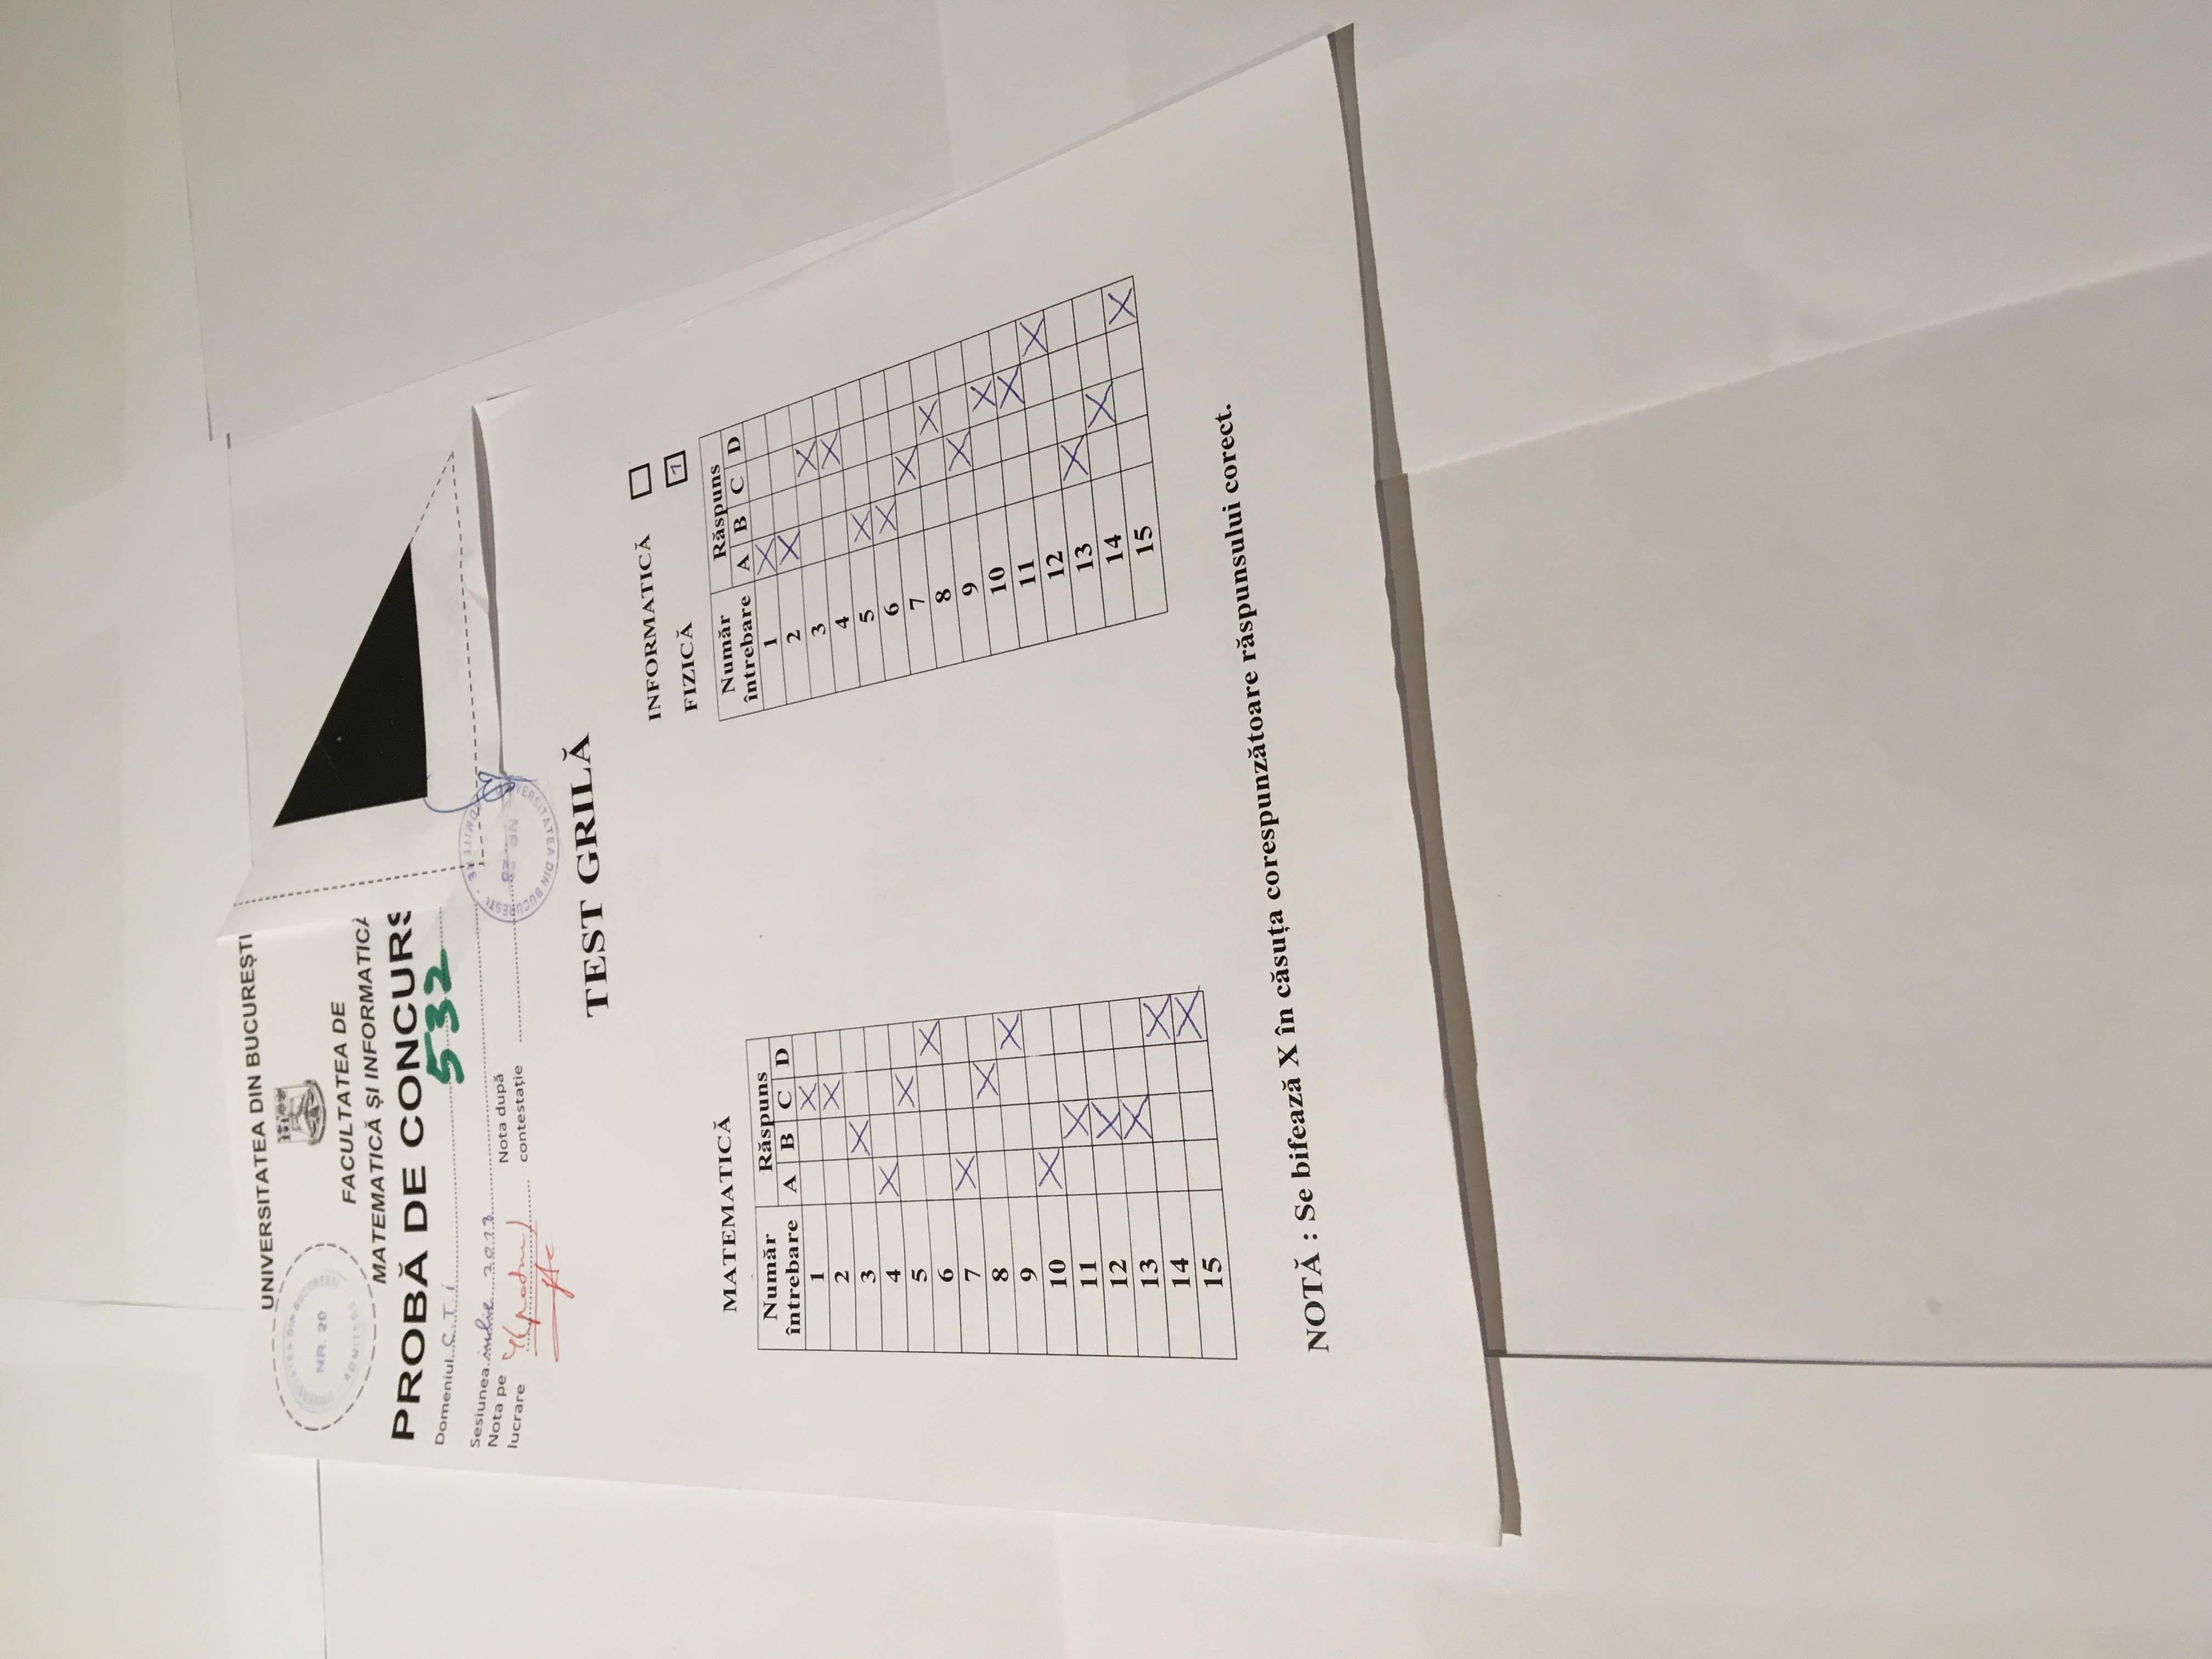 UNIVERSITATEA DIN BUCUREȘTI
UNIVERSITATEA DIN BUCUREȘTI
NR. 20
ADMITERE
FACULTATEA DE
MATEMATICĂ ȘI INFORMATICĂ
PROBĂ DE CONCURS
532
Domeniul C.T.i
Sesiunea iulie 2013
Nota pe
lucrare
4(patru)
Nota după
contestație
UNIVERSITATEA DIN BUCUREȘTI - ADMITERE
NR. 20
TEST GRILĂ
INFORMATICĂ
FIZICĂ 1
MATEMATICĂ
Număr întrebare Răspuns
A B C D
1 X
2 X
3 X
4 X
5 X
6 X
7 X
8 X
9 X
10 X
11 X
12 X
13 X
14 X
15 X
Număr întrebare Răspuns
A B C D
1 X
2 X
3 X
4 X
5 X
6 X
7 X
8 X
9 X
10 X
11 X
12 X
13 X
14 X
15 X
NOTĂ : Se bifează X în căsuța corespunzătoare răspunsului corect.